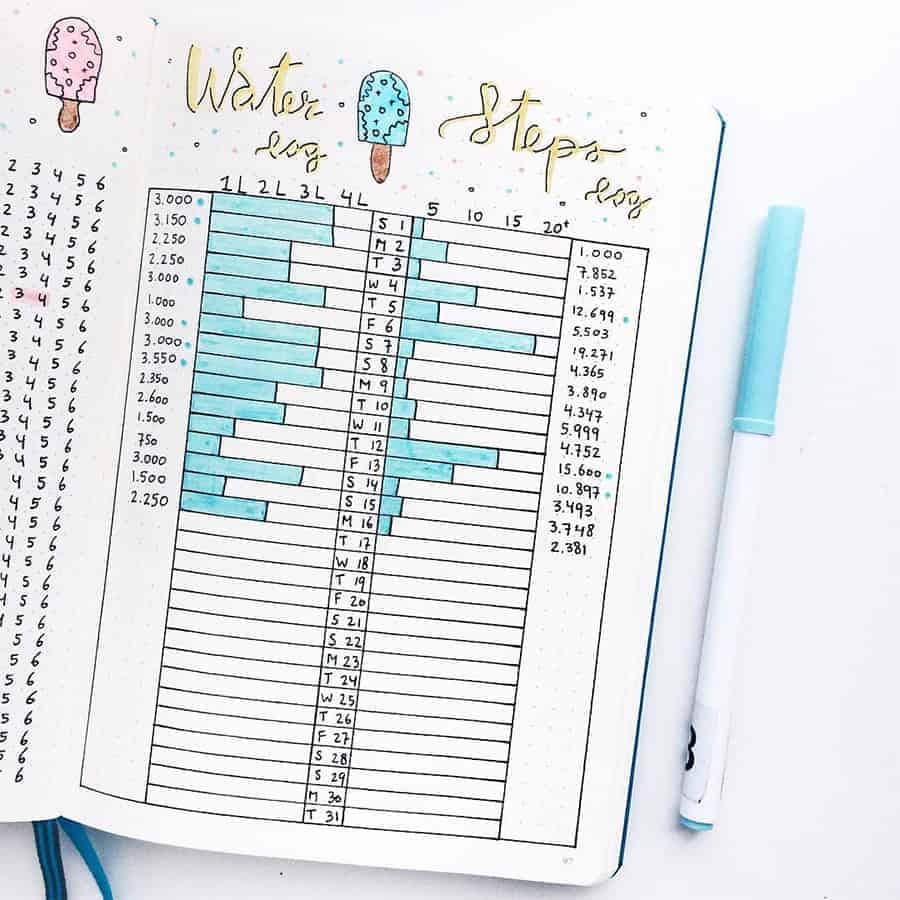 2 3 4 5 6
2 3 4 5 6
2 3 4 5 6
2 3 4 5 6
2 3 4 5 6
2 3 4 5 6
3 4 5 6
3 4 5 6
3 4 5 6
3 4 5 6
3 4 5 6
3 4 5 6
3 4 5 6
3 4 5 6
4 5 6
4 5 6
4 5 6
4 5 6
4 5 6
4 5 6
4 5 6
4 5 6
4 5 6
5 6
5 6
5 6
5 6
5 6
5 6
6
6
Water log
Steps log
1L 2L 3L 4L 5 10 15 20+
3.000 S 1 1.000
3.150 M 2 7.852
2.250 T 3 1.537
2.250 W 4 12.699
3.000 T 5 5.503
1.000 F 6 19.271
3.000 S 7 4.365
3.000 S 8 3.890
3.550 M 9 4.347
2.350 T 10 5.999
2.600 W 11 4.752
1.500 T 12 15.600
750 F 13 10.897
3.000 S 14 3.493
1.500 S 15 3.748
2.250 M 16 2.381
T 17
W 18
T 19
F 20
S 21
S 22
M 23
T 24
W 25
T 26
F 27
S 28
S 29
M 30
T 31